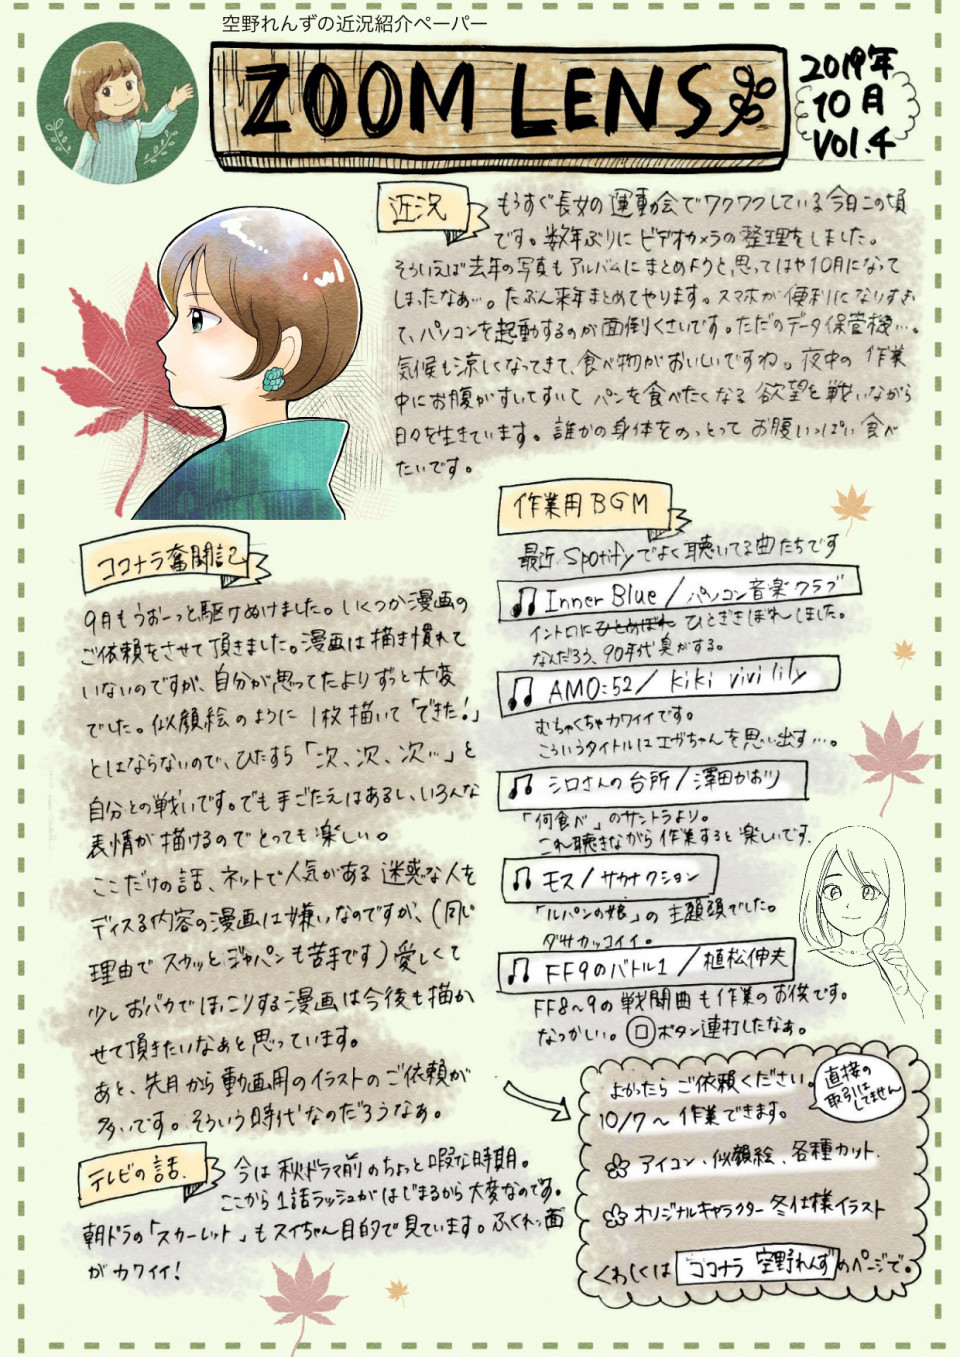 空野れんずの近況紹介ペーパー
ZOOM LENS
2019年
10月
VOL.4
近況
もうすぐ長女の運動会でワクワクしている今日この頃
です。数年ぶりにビデオカメラの整理をしました。
そういえば去年の写真もアルバムにまとめようと思ってはや10月になって
しまったなぁ…。たぶん来年まとめてやります。スマホが便利になりすぎ
て、パソコンを起動するのが面倒くさいです。ただのデータ保管機…。
気候も涼しくなってきて、食べ物がおいしいですね。夜中の作業
中にお腹がすいてすいてパンを食べたくなる欲望と戦いながら
日々を生きています。誰かの身体をのっとってお腹いっぱい食べ
たいです。
ココナラ奮闘記
9月もうおーっと駆けぬけました。いくつか漫画の
ご依頼をさせて頂きました。漫画は描き慣れて
いないのですが、自分が思ってたよりずっと大変
でした。似顔絵のように1枚描いて「できた!」
とはならないので、ひたすら「次、次、次…」と
自分との戦いです。でも手ごたえはあるし、いろんな
表情が描けるのでとっても楽しい。
ここだけの話、ネットで人気がある迷惑な人を
ディスる内容の漫画は嫌いなのですが、(同じ
理由でスカッとジャパンも苦手です)愛しくて
少しおバカでほっこりする漫画は今後も描か
せて頂きたいなぁと思っています。
あと、先月から動画用のイラストのご依頼が
多いです。そういう時代なのだろうなぁ。
テレビの話.
今は秋ドラマ前のちょっと暇な時期。
ここから1話ラッシュがはじまるから大変なのです。
朝ドラの「スカーレット」もスイちゃん目的で見ています。ふくれっ面
がカワイイ!
作業用BGM
最近Spotifyでよく聴いてる曲たちです
Inner Blue/パソコン音楽クラブ
イントロにひとめぼれ ひとぎきぼれしました。
なんだろう、90年代臭がする。
AMO:52/kiki vivi lily
むちゃくちゃカワイイです。
こういうタイトルはエガちゃんを思い出す…。
シロさんの台所/澤田かおり
「何食べ」のサントラより。
これ聴きながら作業すると楽しいです.
モス/サカナクション
「ルパンの娘」の主題歌でした。
ダサカッコイイ。
FF9のバトル1/植松伸夫
FF8〜9の戦闘曲も作業のお供です。
なつかしい。□ボタン連打したなぁ。
よかったらご依頼ください。
10/7〜作業できます。
直接の
取引は
してません
アイコン、似顔絵、各種カット.
オリジナルキャラクター冬仕様イラスト
くわしくは ココナラ 空野れんず のページで。